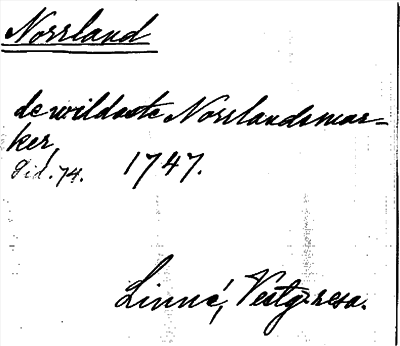 Norrland
de wildaste Norrlandsmar-
ker
Sid. 74. 1747.
Linné, Vestg. resa.